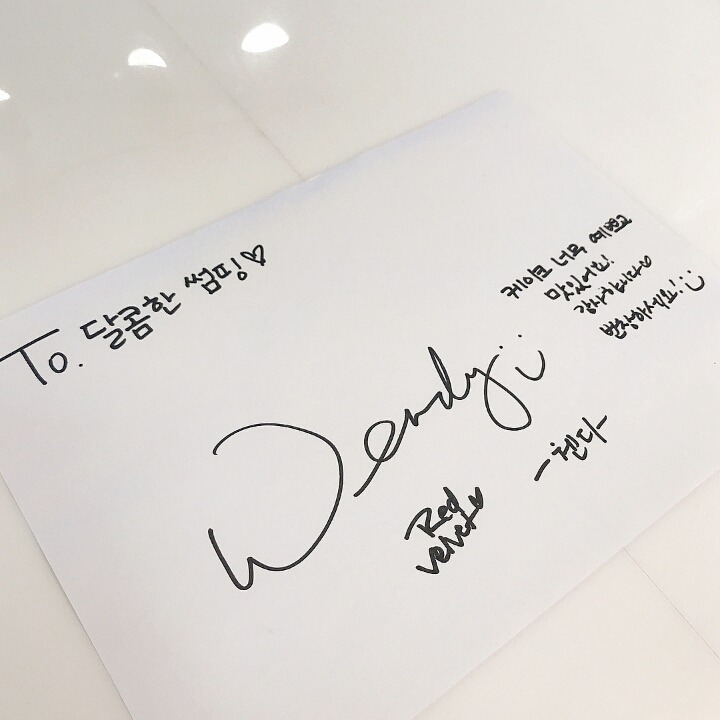 To. 달콤한 썸핑♡
케이크 너무 예쁘고
맛있어요!
감사합니다♡
번창하세요! :)
Wendy :)
Red
Velvet♡
-웬디-